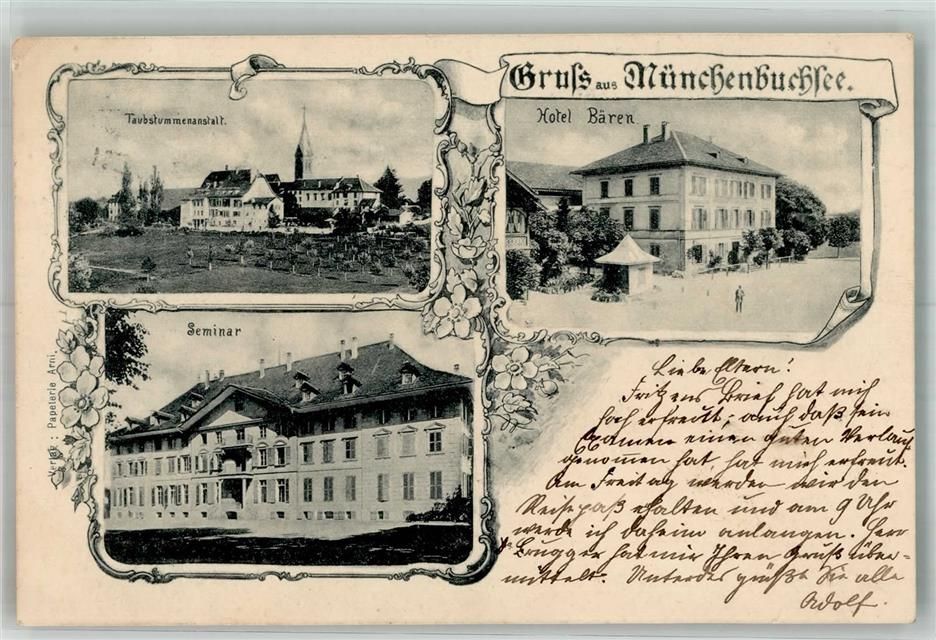 Gruss aus Münchenbuchsee.
Taubstummenanstalt.
Hotel Bären.
Seminar
Verlag: Papeterie Arni.
Liebe Eltern!
Fritzens Brief hat mich
hoch erfreut; auch daß sein
Examen einen guten Verlauf
genommen hat, hat mich erfreut.
Am Freitag werden wir den
Reisepaß erhalten und am 9 Uhr
werde ich daheim anlangen. Herr
Brügger hat mir Ihren Gruß über-
mittelt. Unterdes grüßt Sie alle
Adolf.